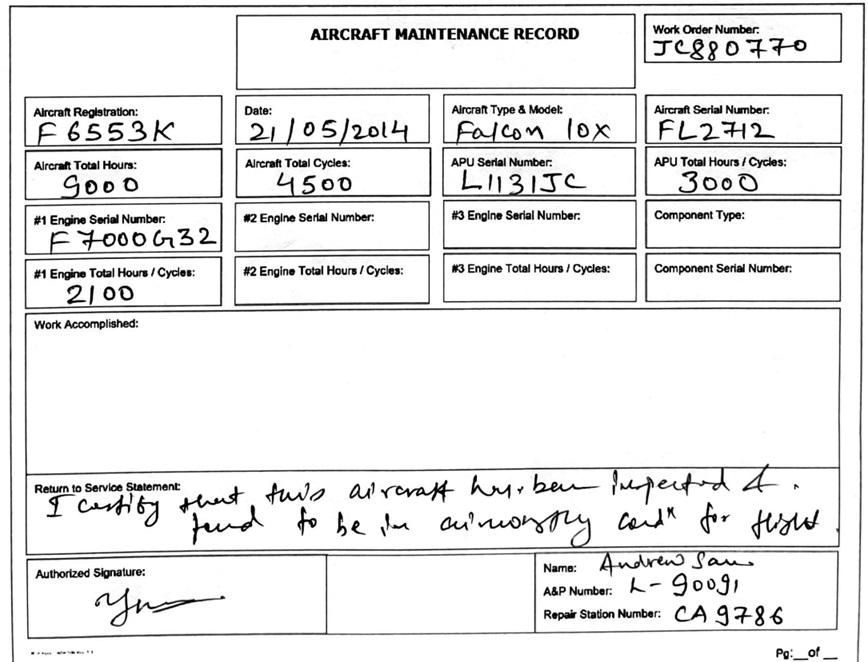 AIRCRAFT MAINTENANCE RECORD
Work Order Number:
JC880770
Aircraft Registration:
F6553K
Date:
21/05/2014
Aircraft Type & Model:
Falcon 10X
Aircraft Serial Number:
FL2712
Aircraft Total Hours:
9000
Aircraft Total Cycles:
4500
APU Serial Number:
L1131JC
APU Total Hours / Cycles:
3000
#1 Engine Serial Number:
F7000G32
#2 Engine Serial Number:
#3 Engine Serial Number:
Component Type:
#1 Engine Total Hours / Cycles:
2100
#2 Engine Total Hours / Cycles:
#3 Engine Total Hours / Cycles:
Component Serial Number:
Work Accomplished:
Return to Service Statement:
I certify that this aircraft has been inspected &
found to be in airworthy condn for flight.
Authorized Signature:
Name: Andrew Sam
A&P Number: L-90091
Repair Station Number: CA9786
Pg:__of __